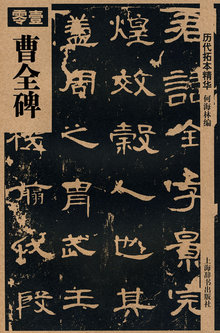 零壹
曹全碑
历代拓本精华
何海林编
君諱全字景完
煌效穀人也其
蓋周之胄武王
機翦伐殷
上海辞书出版社